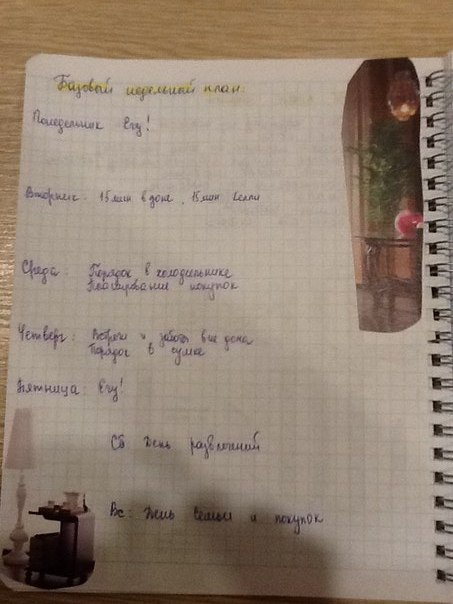 Базовый недельный план.
Понедельник Егу!
Вторник: 15 мин в доме, 15 мин
Среда: Порядок в холодильнике
Планирование покупок
Четверг: Встречи и забота вне дома
Порядок в сумке
Пятница: Егу!
Сб День развлечений
Вс: День семьи и покупок